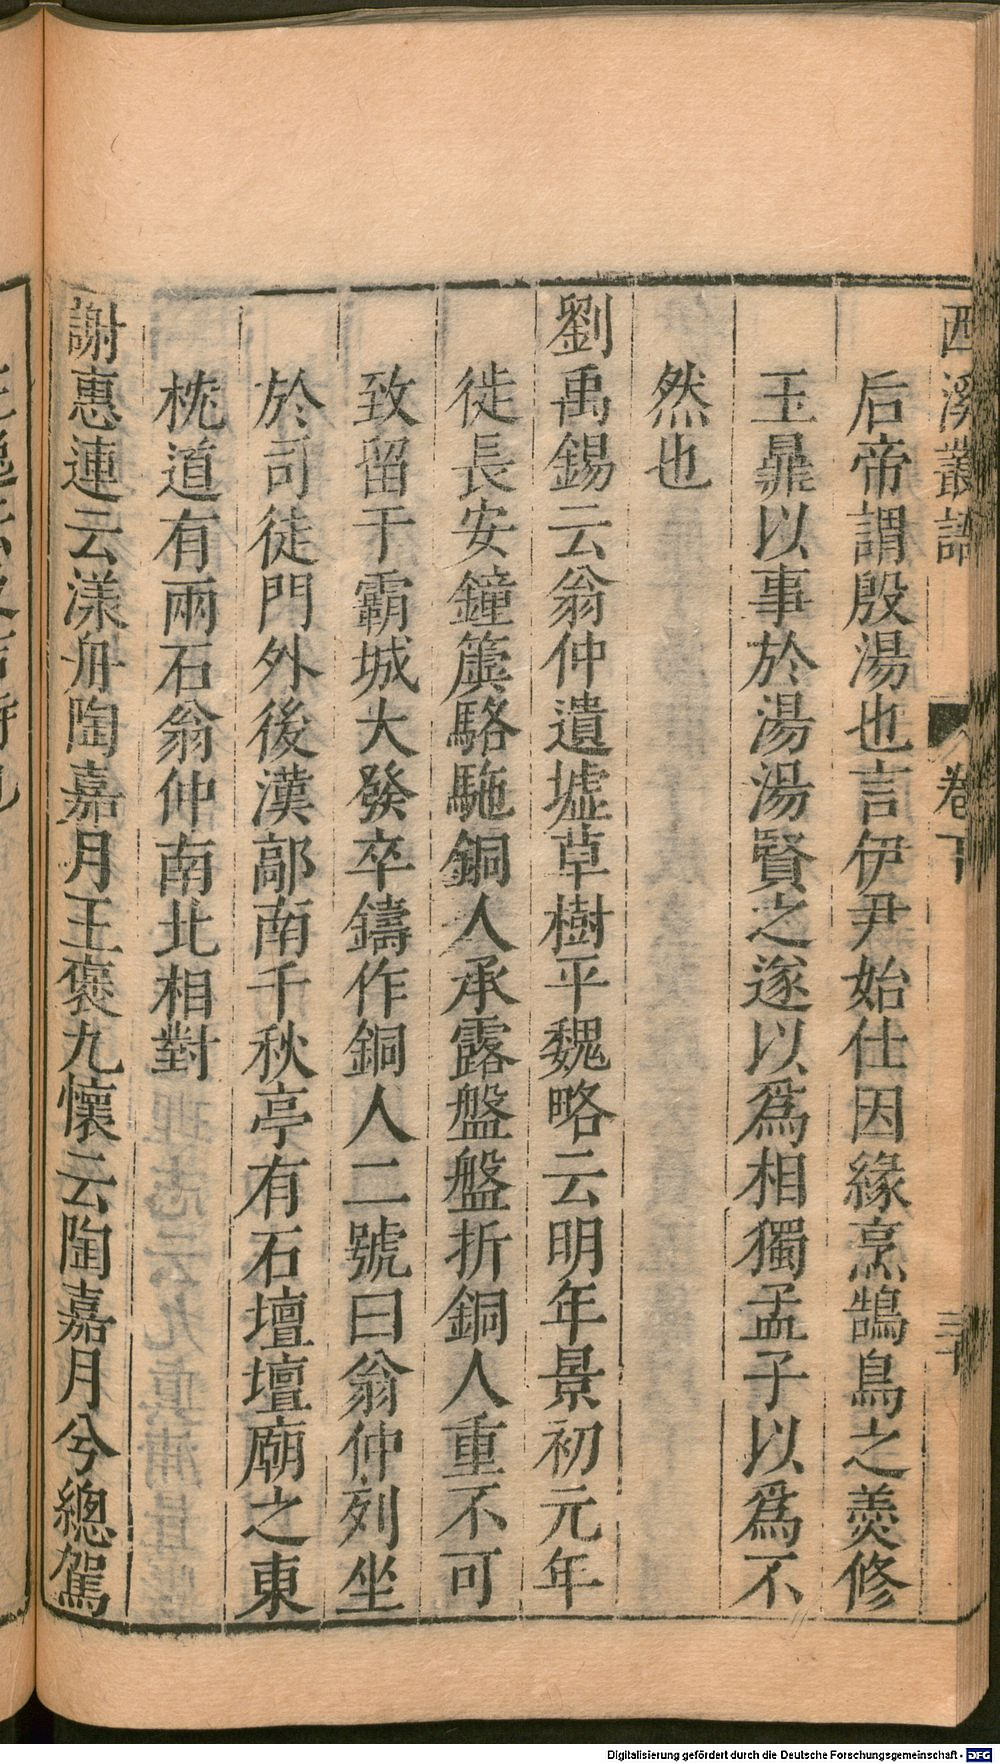 西溪叢語 卷下 三十
后帝謂殷湯也言伊尹始仕因緣烹鵠鳥之羹修
玉鼎以事於湯湯賢之遂以爲相獨孟子以爲不
然也
劉禹錫云翁仲遺墟草樹平魏略云明年景初元年
徙長安鐘簴駱駞銅人承露盤盤折銅人重不可
致留于霸城大發卒鑄作銅人二號曰翁仲列坐
於司徒門外後漢鄗南千秋亭有石壇壇廟之東
枕道有兩石翁仲南北相對
謝惠連云漾舟陶嘉月王褒九懷云陶嘉月兮總駕
Digitalisierung gefördert durch die Deutsche Forschungsgemeinschaft - DFG